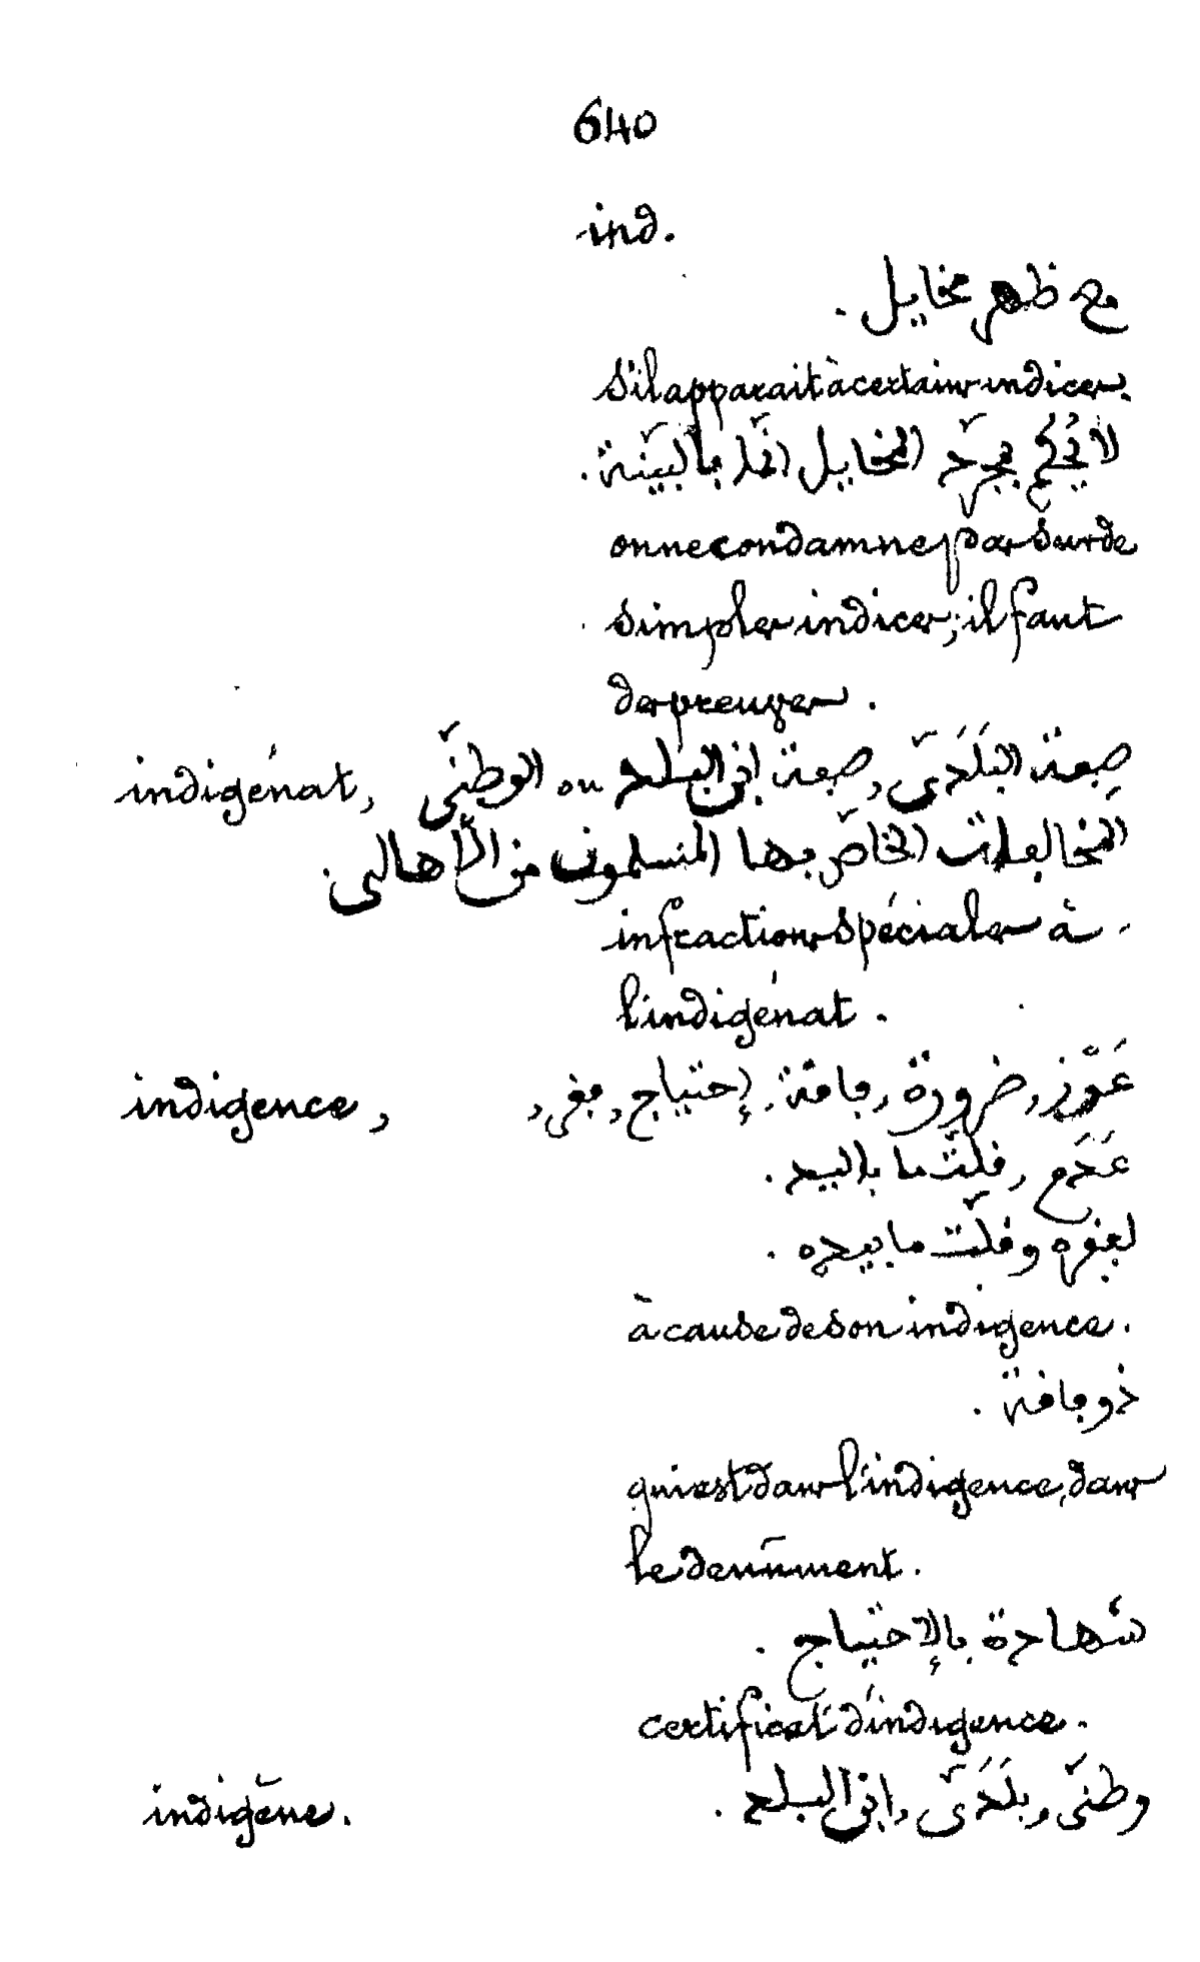 640
ind.
مع ظهر مخايل.
s'il apparait à certains indices.
لا يُحْكَم بمجرّد المخايل انّما بالبَيّنة.
on ne condamne pas sur de
simples indices; il faut
des preuves.
indigénat, صفة البَلَدَىّ, صفة ابن البلد ou الوطنىّ
المخالفات الخاصّ بها المسلمون من الأهالى.
infractions spéciales à
l'indigénat.
indigence, عَوَز, ضرورة, فاقة, إحتياج, فقر,
عَدَم, قلّة ما باليد.
لفقره وقلّة ما بيده.
à cause de son indigence.
ذو فاقة.
qui est dans l'indigence, dans
le denûment.
شهادة بالإحتياج.
certificat d'indigence.
indigène. وطنىّ, بلَدَىّ, ابن البلد.